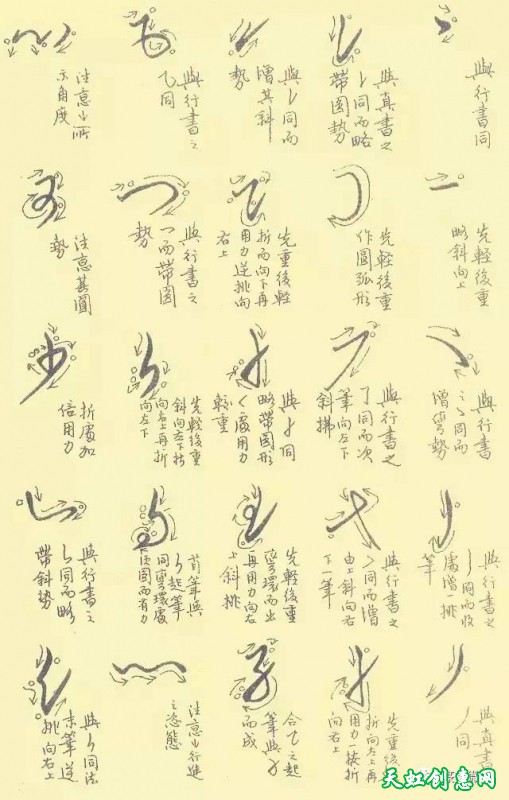 與行書同
先輕後重
略斜向上
與行書之
乀同而
增彎勢
與行書之
亅同而收
處增一挑
筆
與真書
丿同
與真書之
同而略
帶圓勢
先輕後重
作圓弧形
與行書之
了同而次
筆向左下
斜拂
與行書之
同而增
由上斜向右
下一筆
先重後
折向左上再
用力一按折
向右上
與同而
增其斜
勢
先重後輕
折而向下再
用力逆挑向
右上
與同
略帶圓形
處用力
較重
先輕後重
彎環而出
再用力向右
上斜挑
合乙之起
筆與
而成
與行書之
乙同
與行書之
乛而帶圓
勢
先輕後重
斜向左下折
向右上再折
向左下
首筆與
起筆
同彎環處
須圓而有力
注意行進
之姿態
注意所
示角度
注意其圓
勢
折處加
倍用力
與行書之
同而略
帶斜勢
與同法
末筆逆
挑向右上
天虹创意网